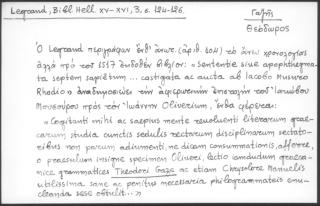 Legrand, Bibl. Hell. XV-XVI, 3, σ. 124-126.
Γαζῆς
Θεόδωρος
Ὁ Legrand περιγράφων ἐνθ' ἀνωτ. (ἀριθ. 604) τὸ ἄνευ χρονολογίας
ἀλλὰ πρὸ τοῦ 1557 ἐκδοθὲν βιβλίον: «Sententie siue apophthegma-
ta septem sapientum... castigata ac aucta ab Iacobo Musuro
Rhodio» ἀναδημοσιεύει τὴν ἀφιερωτικὴν ἐπιστολὴν τοῦ Ἰακώβου
Μουσούρου πρὸς τὸν Ἰωάννην Oliverium, ἔνθα φέρεται:
«Cogitanti mihi ac saepius mente revolventi literarum graeca-
rum studia cunctis sedulis rectarum disciplinarum sectato-
ribus non parum adiumenti, ne dicam consummationis, afferre,
o praesulum insigne specimen Oliveri, lectio
grammatices Theodori Gazae ac etiam Chrysolorae Manuelis
utilissima sane ac penitus necessaria philogrammateis enu-
cleanda sese obtulit...»